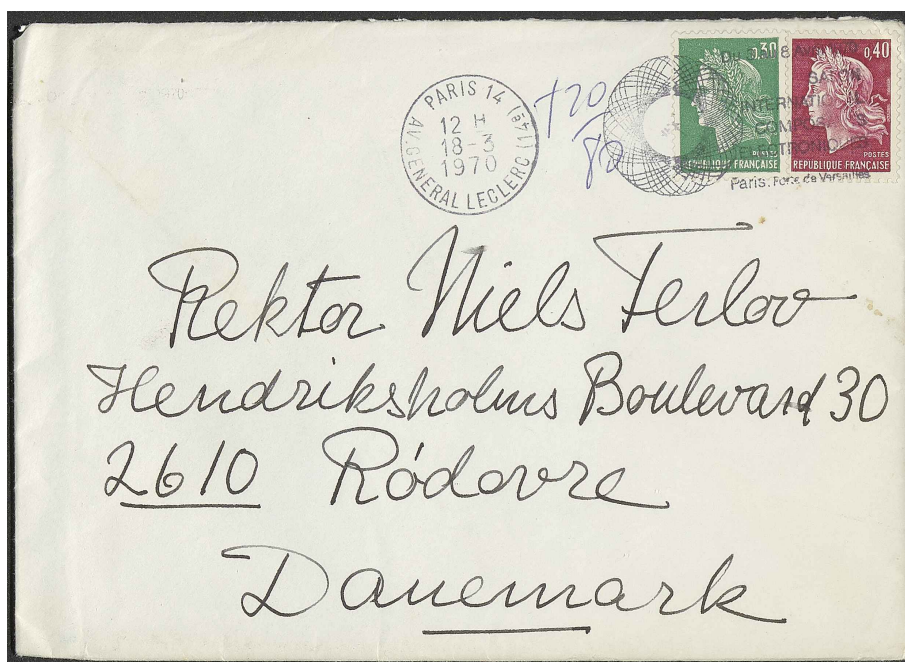 PARIS 14 (14e)
12 H
18-3
1970
AV. GENERAL LECLERC
T 20
80
0,30
POSTES
REPUBLIQUE FRANÇAISE
0,40
POSTES
REPUBLIQUE FRANÇAISE
SALON
INTERNATIONAL
Paris. Porte de Versailles
Rektor Niels Ferlov
Hendriksholms Boulevard 30
2610 Ródovre
Danemark